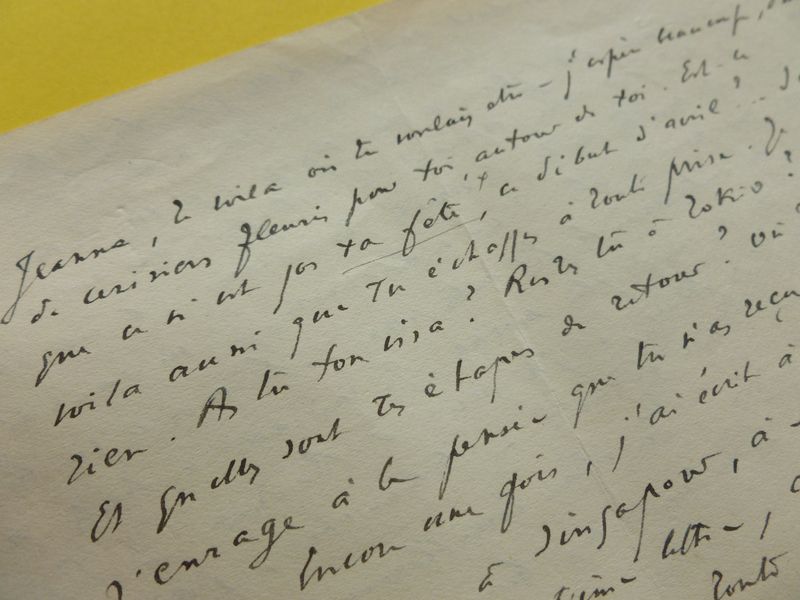 Jeanne, te voilà où tu voulais être – j'espère beaucoup,
de cerisiers fleuris pour toi, autour de toi. Est-ce
que ce n'est pas ta fête, ce début d'avril ? ...
voilà aussi que tu échappes à toute prise. Je
rien. As tu ton visa ? Restes tu à Tokio ?
Et quelles sont tes étapes de retour ? Où
J'enrage à la pensée que tu n'as reçu
Encore une fois, j'ai écrit à
à Singapour, à
lettre,
toute